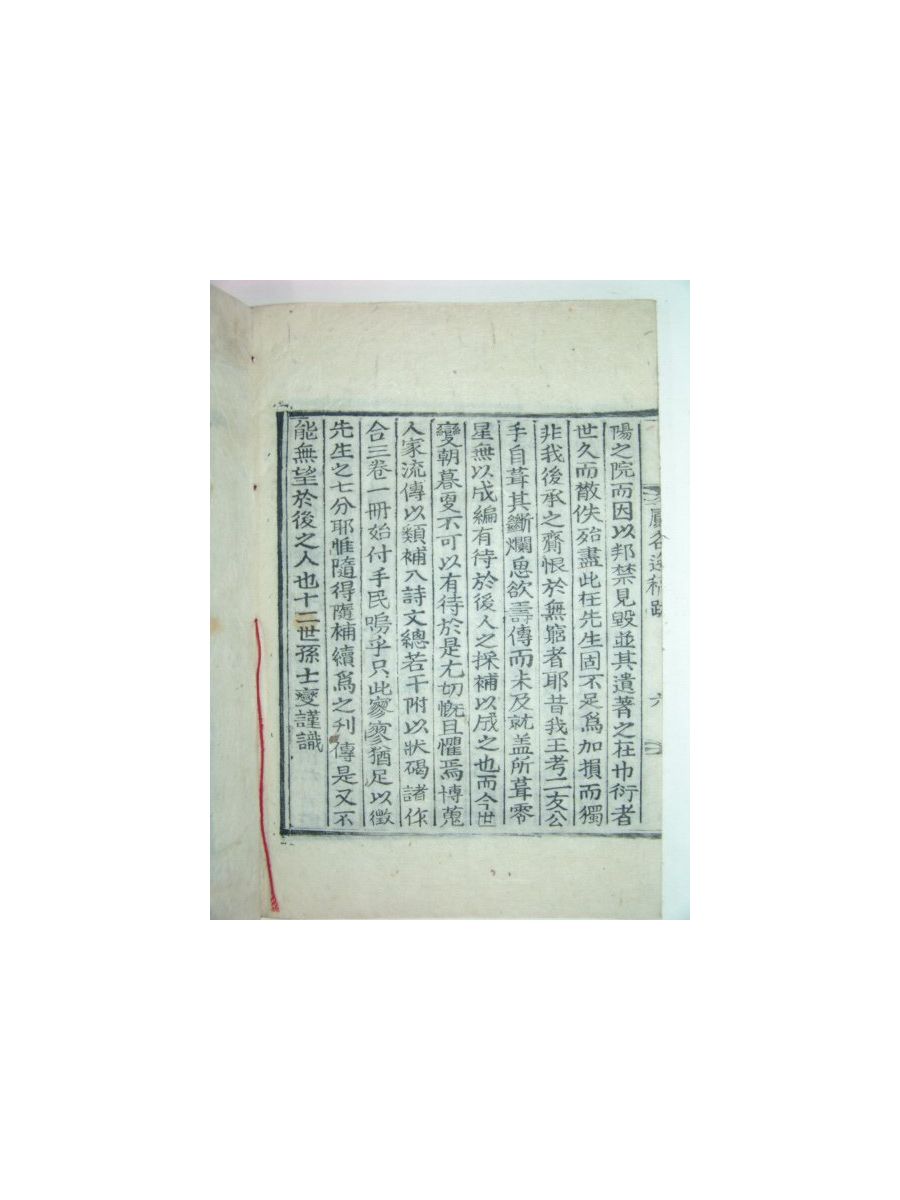 陽之院而因以邦禁見毀並其遺著之在巾衍者
世久而散佚殆盡此在先生固不足爲加損而獨
非我後承之齎恨於無窮者耶昔我王考二友公
手自葺其斷爛思欲壽傳而未及就盖所葺零
星無以成編有待於後人之採補以成之也而今世
變朝暮更不可以有待於是尤切慨且懼焉博蒐
人家流傳以類補入詩文總若干附以狀碣諸作
合三卷一冊始付手民嗚乎只此寥寥猶足以徵
先生之七分耶惟隨得隨補續爲之刋傳是又不
能無望於後之人也十二世孫士變謹識
谷逸稿跋
六